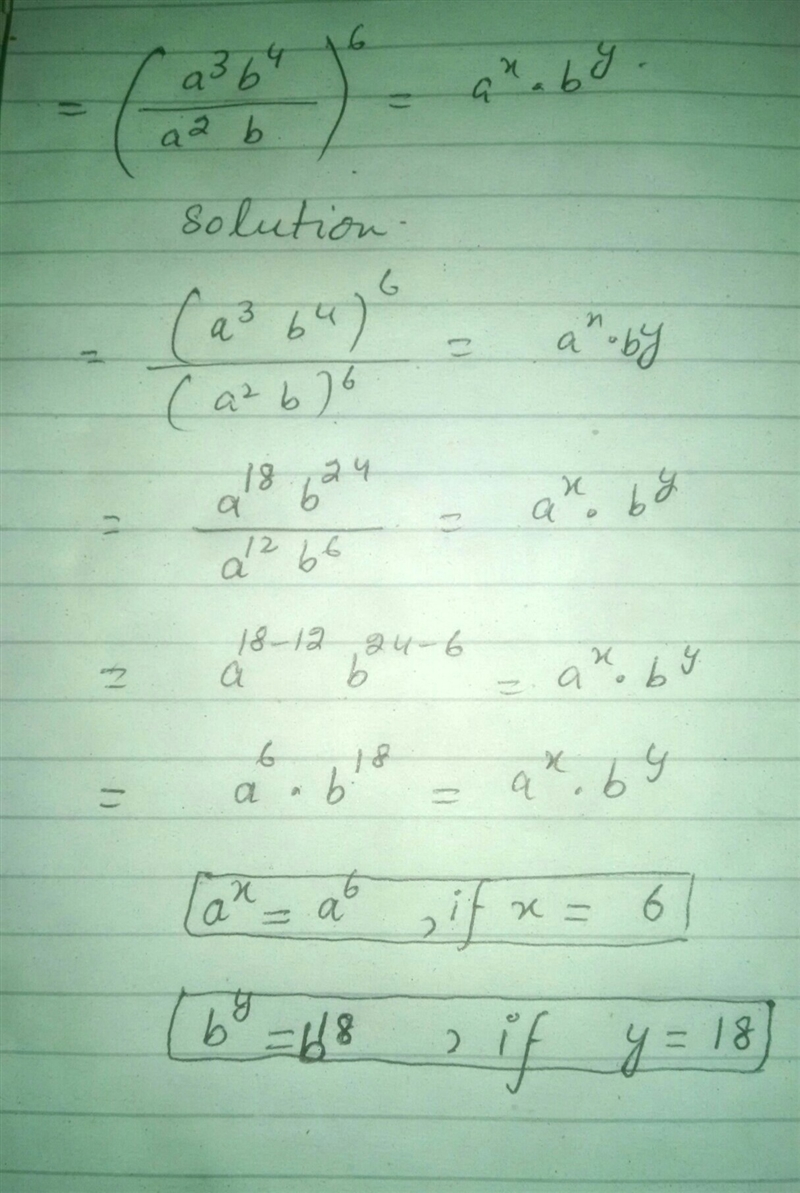 = (a³b⁴ / a² b)⁶ = aˣ · bʸ.
Solution.
= (a³ b⁴)⁶ / (a² b)⁶ = aˣ · bʸ
= a¹⁸ b²⁴ / a¹² b⁶ = aˣ · bʸ
= a¹⁸⁻¹² b²⁴⁻⁶ = aˣ · bʸ
= a⁶ · b¹⁸ = aˣ · bʸ
aˣ = a⁶ , if x = 6
bʸ = b¹⁸ , if y = 18